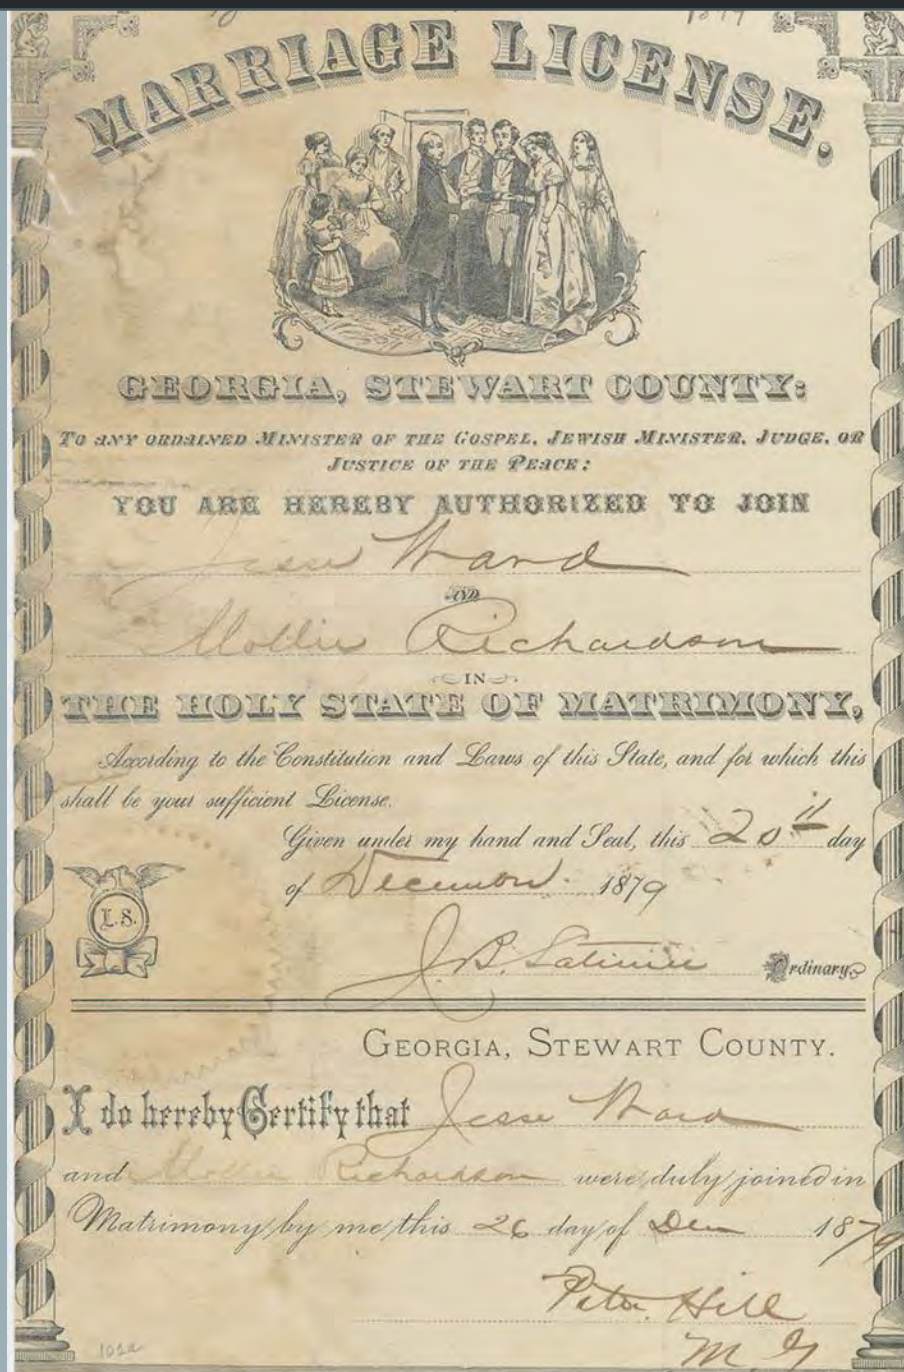 1879
MARRIAGE LICENSE.
GEORGIA, STEWART COUNTY:
TO ANY ORDAINED MINISTER OF THE GOSPEL, JEWISH MINISTER, JUDGE, OR
JUSTICE OF THE PEACE:
YOU ARE HEREBY AUTHORIZED TO JOIN
Jesse Ward
AND
Mollie Richardson
IN
THE HOLY STATE OF MATRIMONY,
According to the Constitution and Laws of this State, and for which this
shall be your sufficient License.
Given under my hand and Seal, this 20th day
of December 1879
L.S.
J. B. Latimer Ordinary
GEORGIA, STEWART COUNTY.
I do hereby Certify that Jesse Ward
and Mollie Richardson were duly joined in
Matrimony by me this 26 day of Dem 1879
Peter Hill
M G